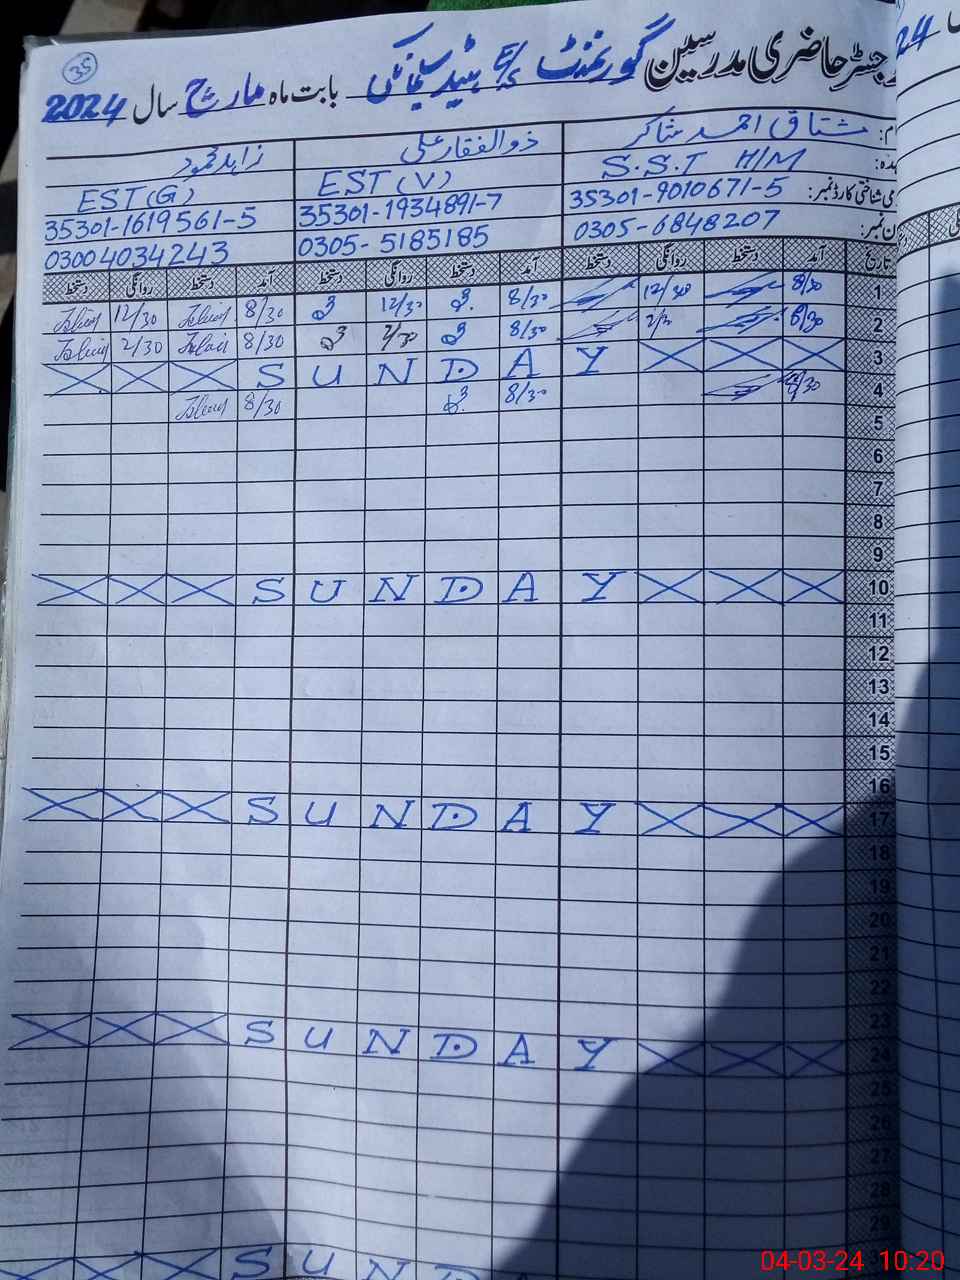 35
رجسٹر حاضری مدرسین گورنمنٹ ہیڈ سلیمانکی بابت ماہ مارچ سال 2024
24
نام: مشتاق احمد شاکر ذوالفقار علی زاہد محمود
عہدہ: S.S.T H/M EST (V) EST (G)
قومی شناختی کارڈ نمبر: 35301-9010671-5 35301-1934891-7 35301-1619561-5
فون نمبر: 0305-6848207 0305-5185185 03004034243
تاریخ آمد دستخط روانگی دستخط آمد دستخط روانگی دستخط آمد دستخط روانگی دستخط
1 8/30 12/30 8/30 12/30 8/30 12/30
2 8/30 8/30 2/30 8/30 2/30
3 SUNDAY
4 8/30 8/30 8/30
5
6
7
8
9
10 SUNDAY
11
12
13
14
15
16
17 SUNDAY
18
19
20
21
22
23
24 SUNDAY
25
26
27
28
29
SUNDAY
04-03-24 10:20